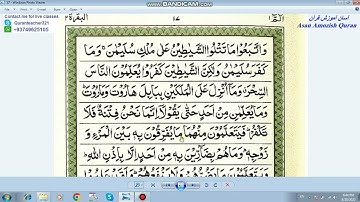 WWW.BANDICAM.COM
Contact me for live classes
Quranteacher321
+93749625165
آسان آموزش قرآن
Asan Amozish Quran
البقرة ٢
١٧
الٓمّٓ ١
وَاتَّبَعُوْا مَا تَتْلُوا الشَّيٰطِيْنُ عَلٰى مُلْكِ سُلَيْمٰنَ ۚ وَمَا
كَفَرَ سُلَيْمٰنُ وَلٰكِنَّ الشَّيٰطِيْنَ كَفَرُوْا يُعَلِّمُوْنَ النَّاسَ
السِّحْرَ ۗ وَمَآ اُنْزِلَ عَلَى الْمَلَكَيْنِ بِبَابِلَ هَارُوْتَ وَمَارُوْتَ ۗ
وَمَا يُعَلِّمٰنِ مِنْ اَحَدٍ حَتّٰى يَقُوْلَآ اِنَّمَا نَحْنُ فِتْنَةٌ فَلَا
تَكْفُرْ ۗ فَيَتَعَلَّمُوْنَ مِنْهُمَا مَا يُفَرِّقُوْنَ بِهٖ بَيْنَ الْمَرْءِ وَ
زَوْجِهٖ ۗ وَمَا هُمْ بِضَآرِّيْنَ بِهٖ مِنْ اَحَدٍ اِلَّا بِاِذْنِ اللّٰهِ ۗ